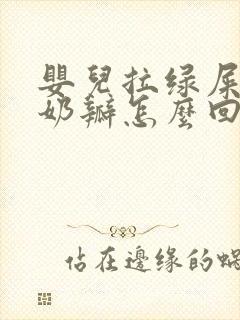 嬰兒拉绿屎
奶瓣怎麼回
佔在邊缘的蝸